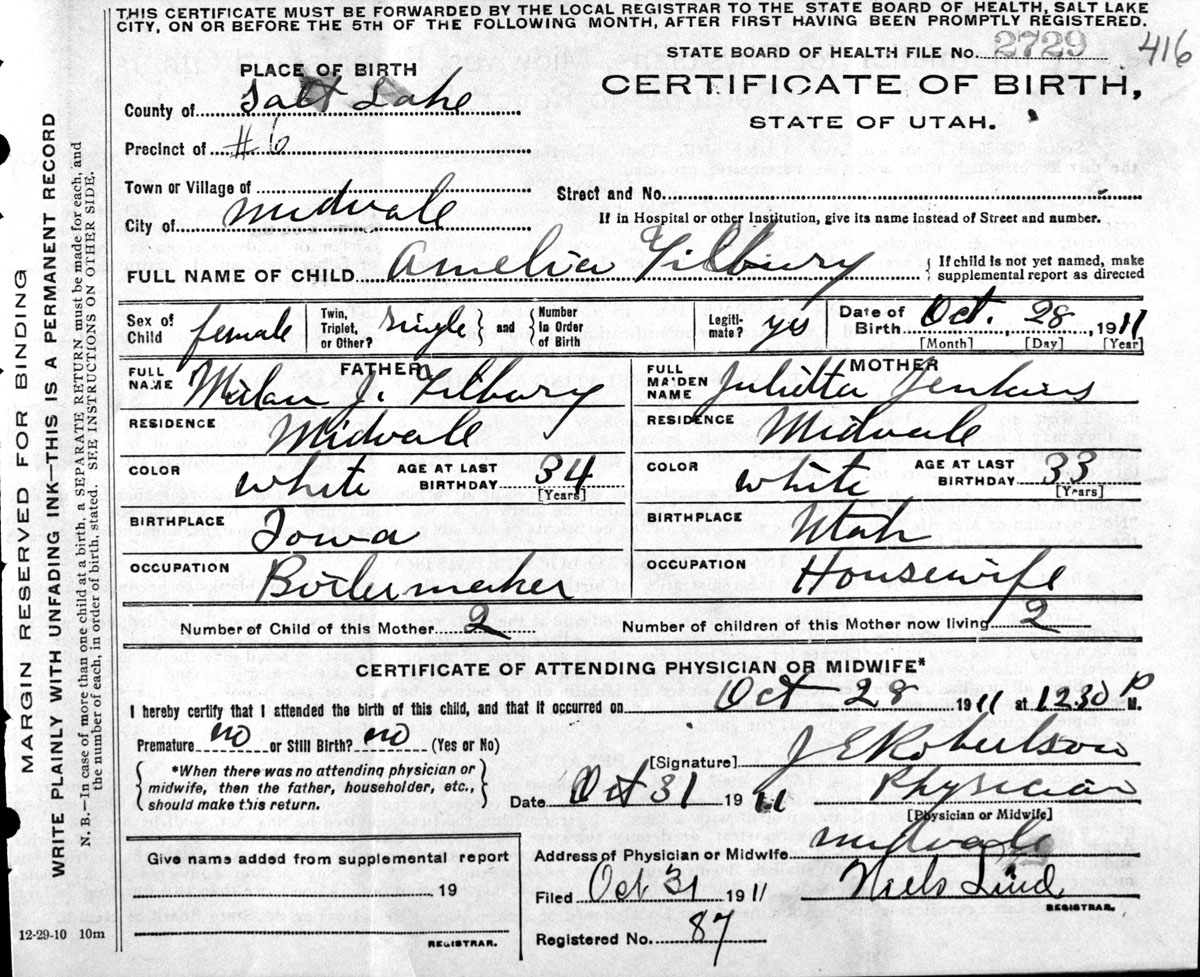 THIS CERTIFICATE MUST BE FORWARDED BY THE LOCAL REGISTRAR TO THE STATE BOARD OF HEALTH, SALT LAKE
CITY, ON OR BEFORE THE 5TH OF THE FOLLOWING MONTH, AFTER FIRST HAVING BEEN PROMPTLY REGISTERED.
STATE BOARD OF HEALTH FILE No. 2729 416
PLACE OF BIRTH
CERTIFICATE OF BIRTH,
County of Salt Lake
STATE OF UTAH.
Precinct of #6
Town or Village of
Street and No.
City of Midvale
If in Hospital or other Institution, give its name instead of Street and number.
FULL NAME OF CHILD Amelia Tilbury { If child is not yet named, make
supplemental report as directed
Sex of Child female Twin, Triplet, or Other? single } and { Number in Order of Birth Legiti-mate? yes Date of Birth Oct. 28, 1911
[Month] [Day] [Year]
FATHER MOTHER
FULL NAME Milan J. Tilbury FULL MAIDEN NAME Julietta Jenkins
RESIDENCE Midvale RESIDENCE Midvale
COLOR white AGE AT LAST BIRTHDAY 34 [Years] COLOR white AGE AT LAST BIRTHDAY 33 [Years]
BIRTHPLACE Iowa BIRTHPLACE Utah
OCCUPATION Boilermaker OCCUPATION Housewife
Number of Child of this Mother 2 Number of children of this Mother now living 2
CERTIFICATE OF ATTENDING PHYSICIAN OR MIDWIFE*
I hereby certify that I attended the birth of this child, and that it occurred on Oct 28 1911 at 12.30 P M.
Premature no or Still Birth? no (Yes or No)
[Signature] J E Robertson
{ *When there was no attending physician or
midwife, then the father, householder, etc.,
should make this return. }
Date Oct 31 1911 Physician
[Physician or Midwife]
Give name added from supplemental report
19
REGISTRAR.
Address of Physician or Midwife Midvale
Filed Oct 31 1911 Niels Lind
REGISTRAR.
Registered No. 87
12-29-10 10m
MARGIN RESERVED FOR BINDING
WRITE PLAINLY WITH UNFADING INK—THIS IS A PERMANENT RECORD
N. B.—In case of more than one child at a birth, a SEPARATE RETURN must be made for each, and
the number of each, in order of birth, stated. SEE INSTRUCTIONS ON OTHER SIDE.